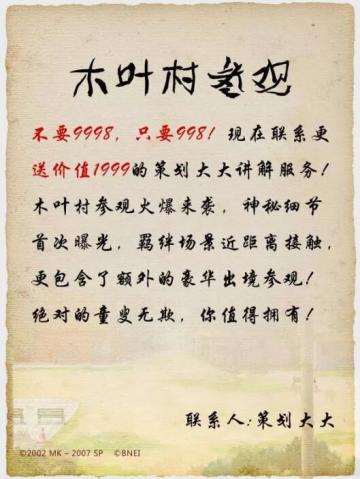 木叶村参观
不要9998，只要998！现在联系更
送价值1999的策划大大讲解服务！
木叶村参观火爆来袭，神秘细节
首次曝光，羁绊场景近距离接触，
更包含了额外的豪华出境参观！
绝对的童叟无欺，你值得拥有！
联系人：策划大大
©2002 MK – 2007 SP ©BNEI